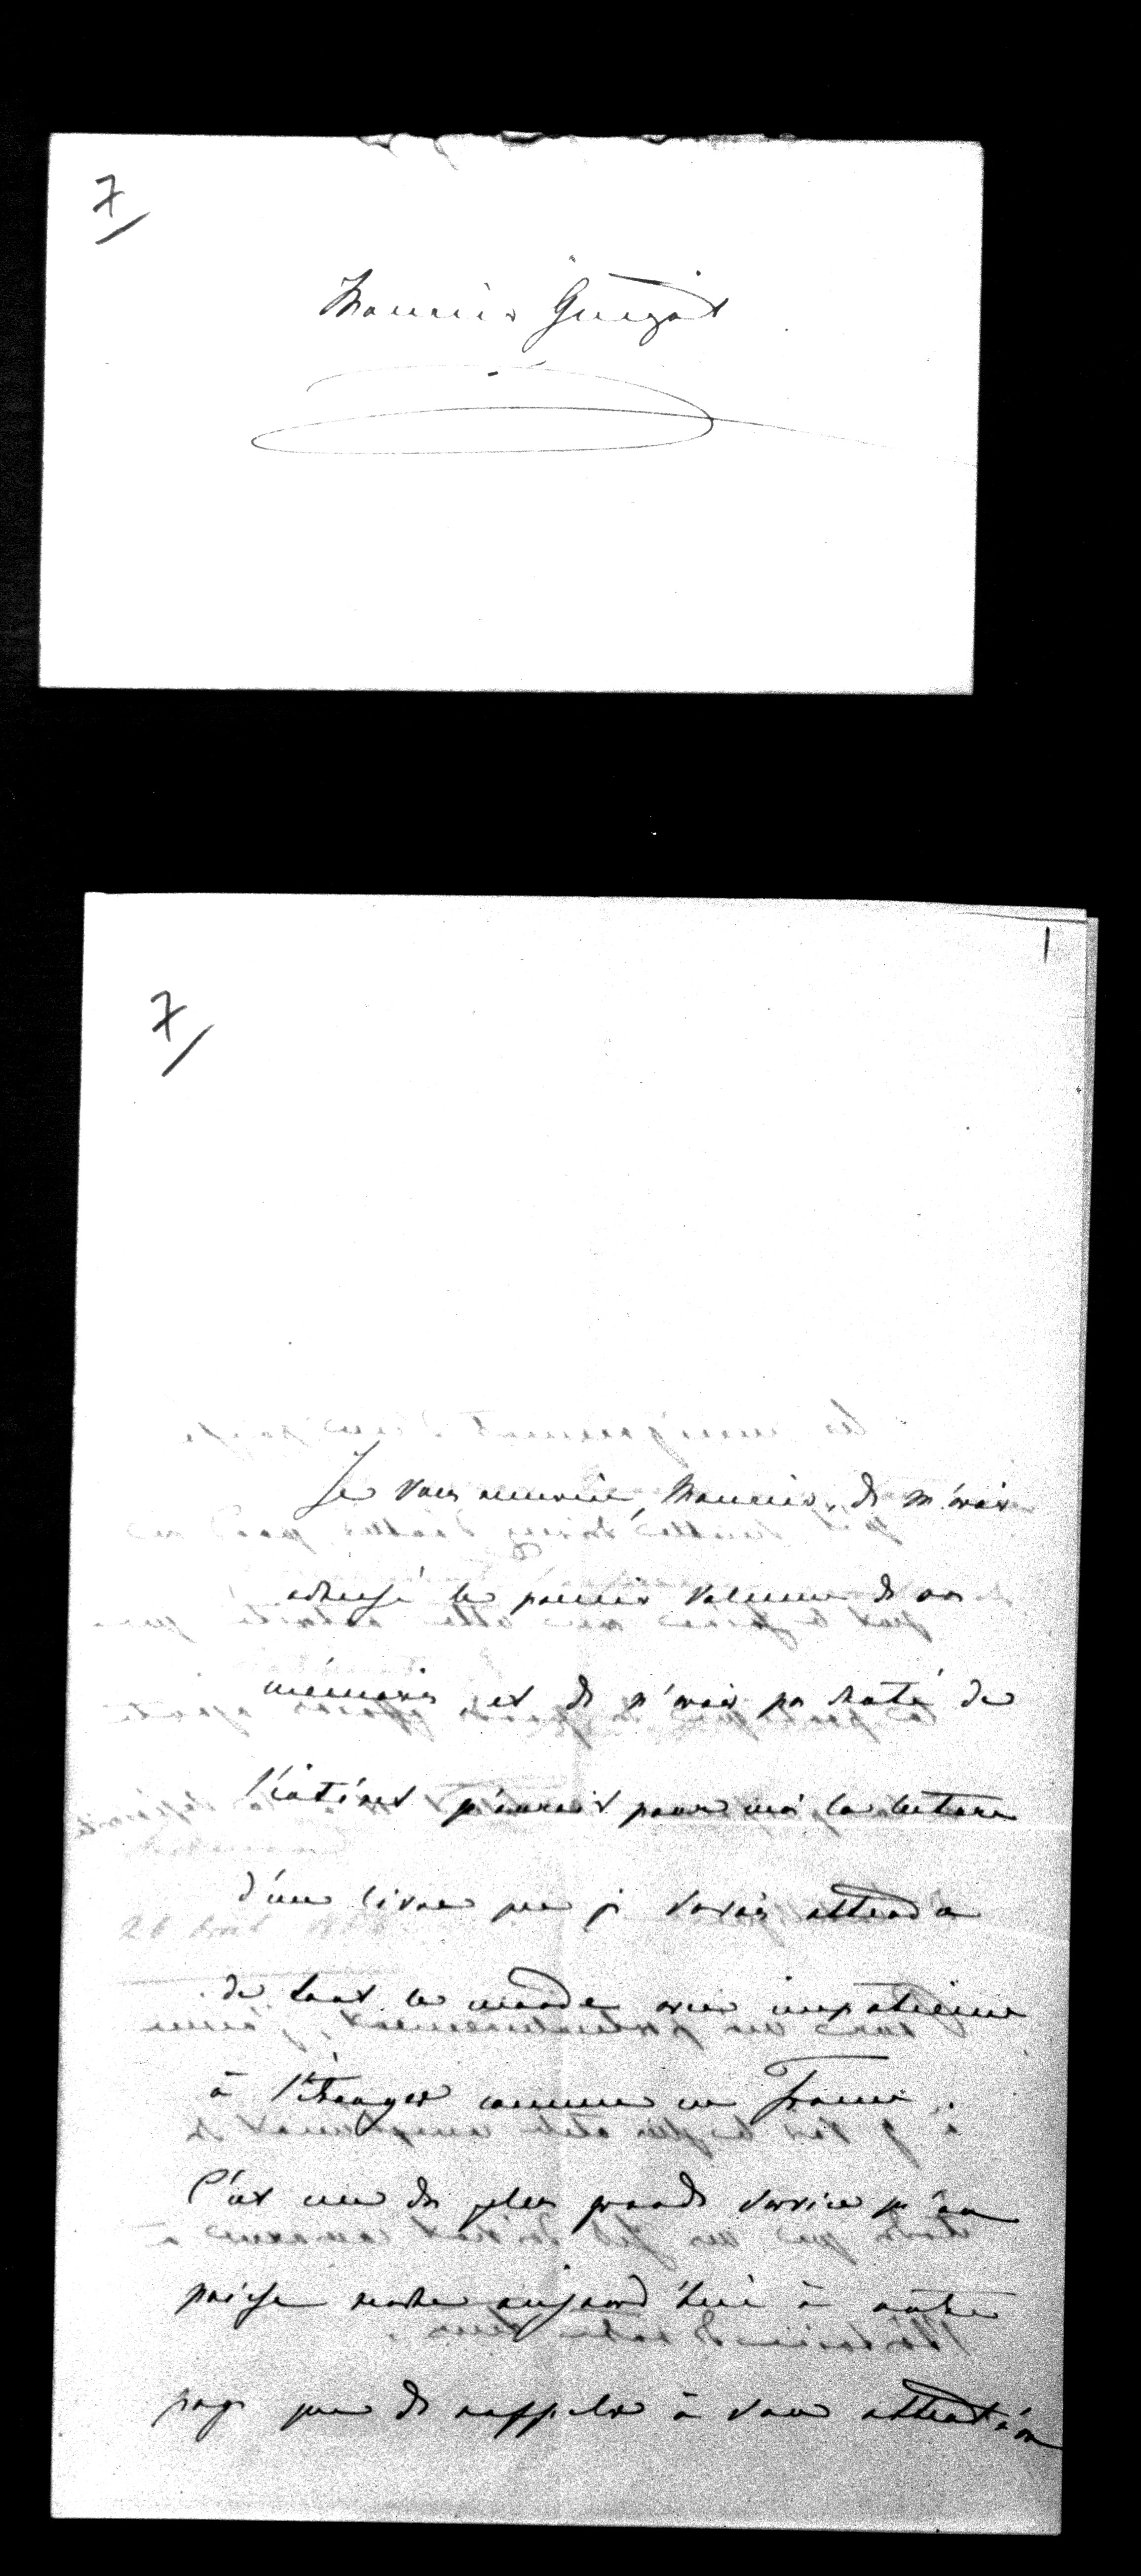 7
Monsieur Guizot
1
7
Je vous remercie, Monsieur, de m'avoir
adressé le premier volume de vos
mémoires et de n'avoir pas douté de
l'intérêt qu'aurait pour moi la lecture
d'un livre que je savais attendu
de tout le monde avec impatience
à l'étranger comme en France.
C'est un des plus grands services qu'on
puisse rendre aujourd'hui à notre
pays que de rappeler à son attention